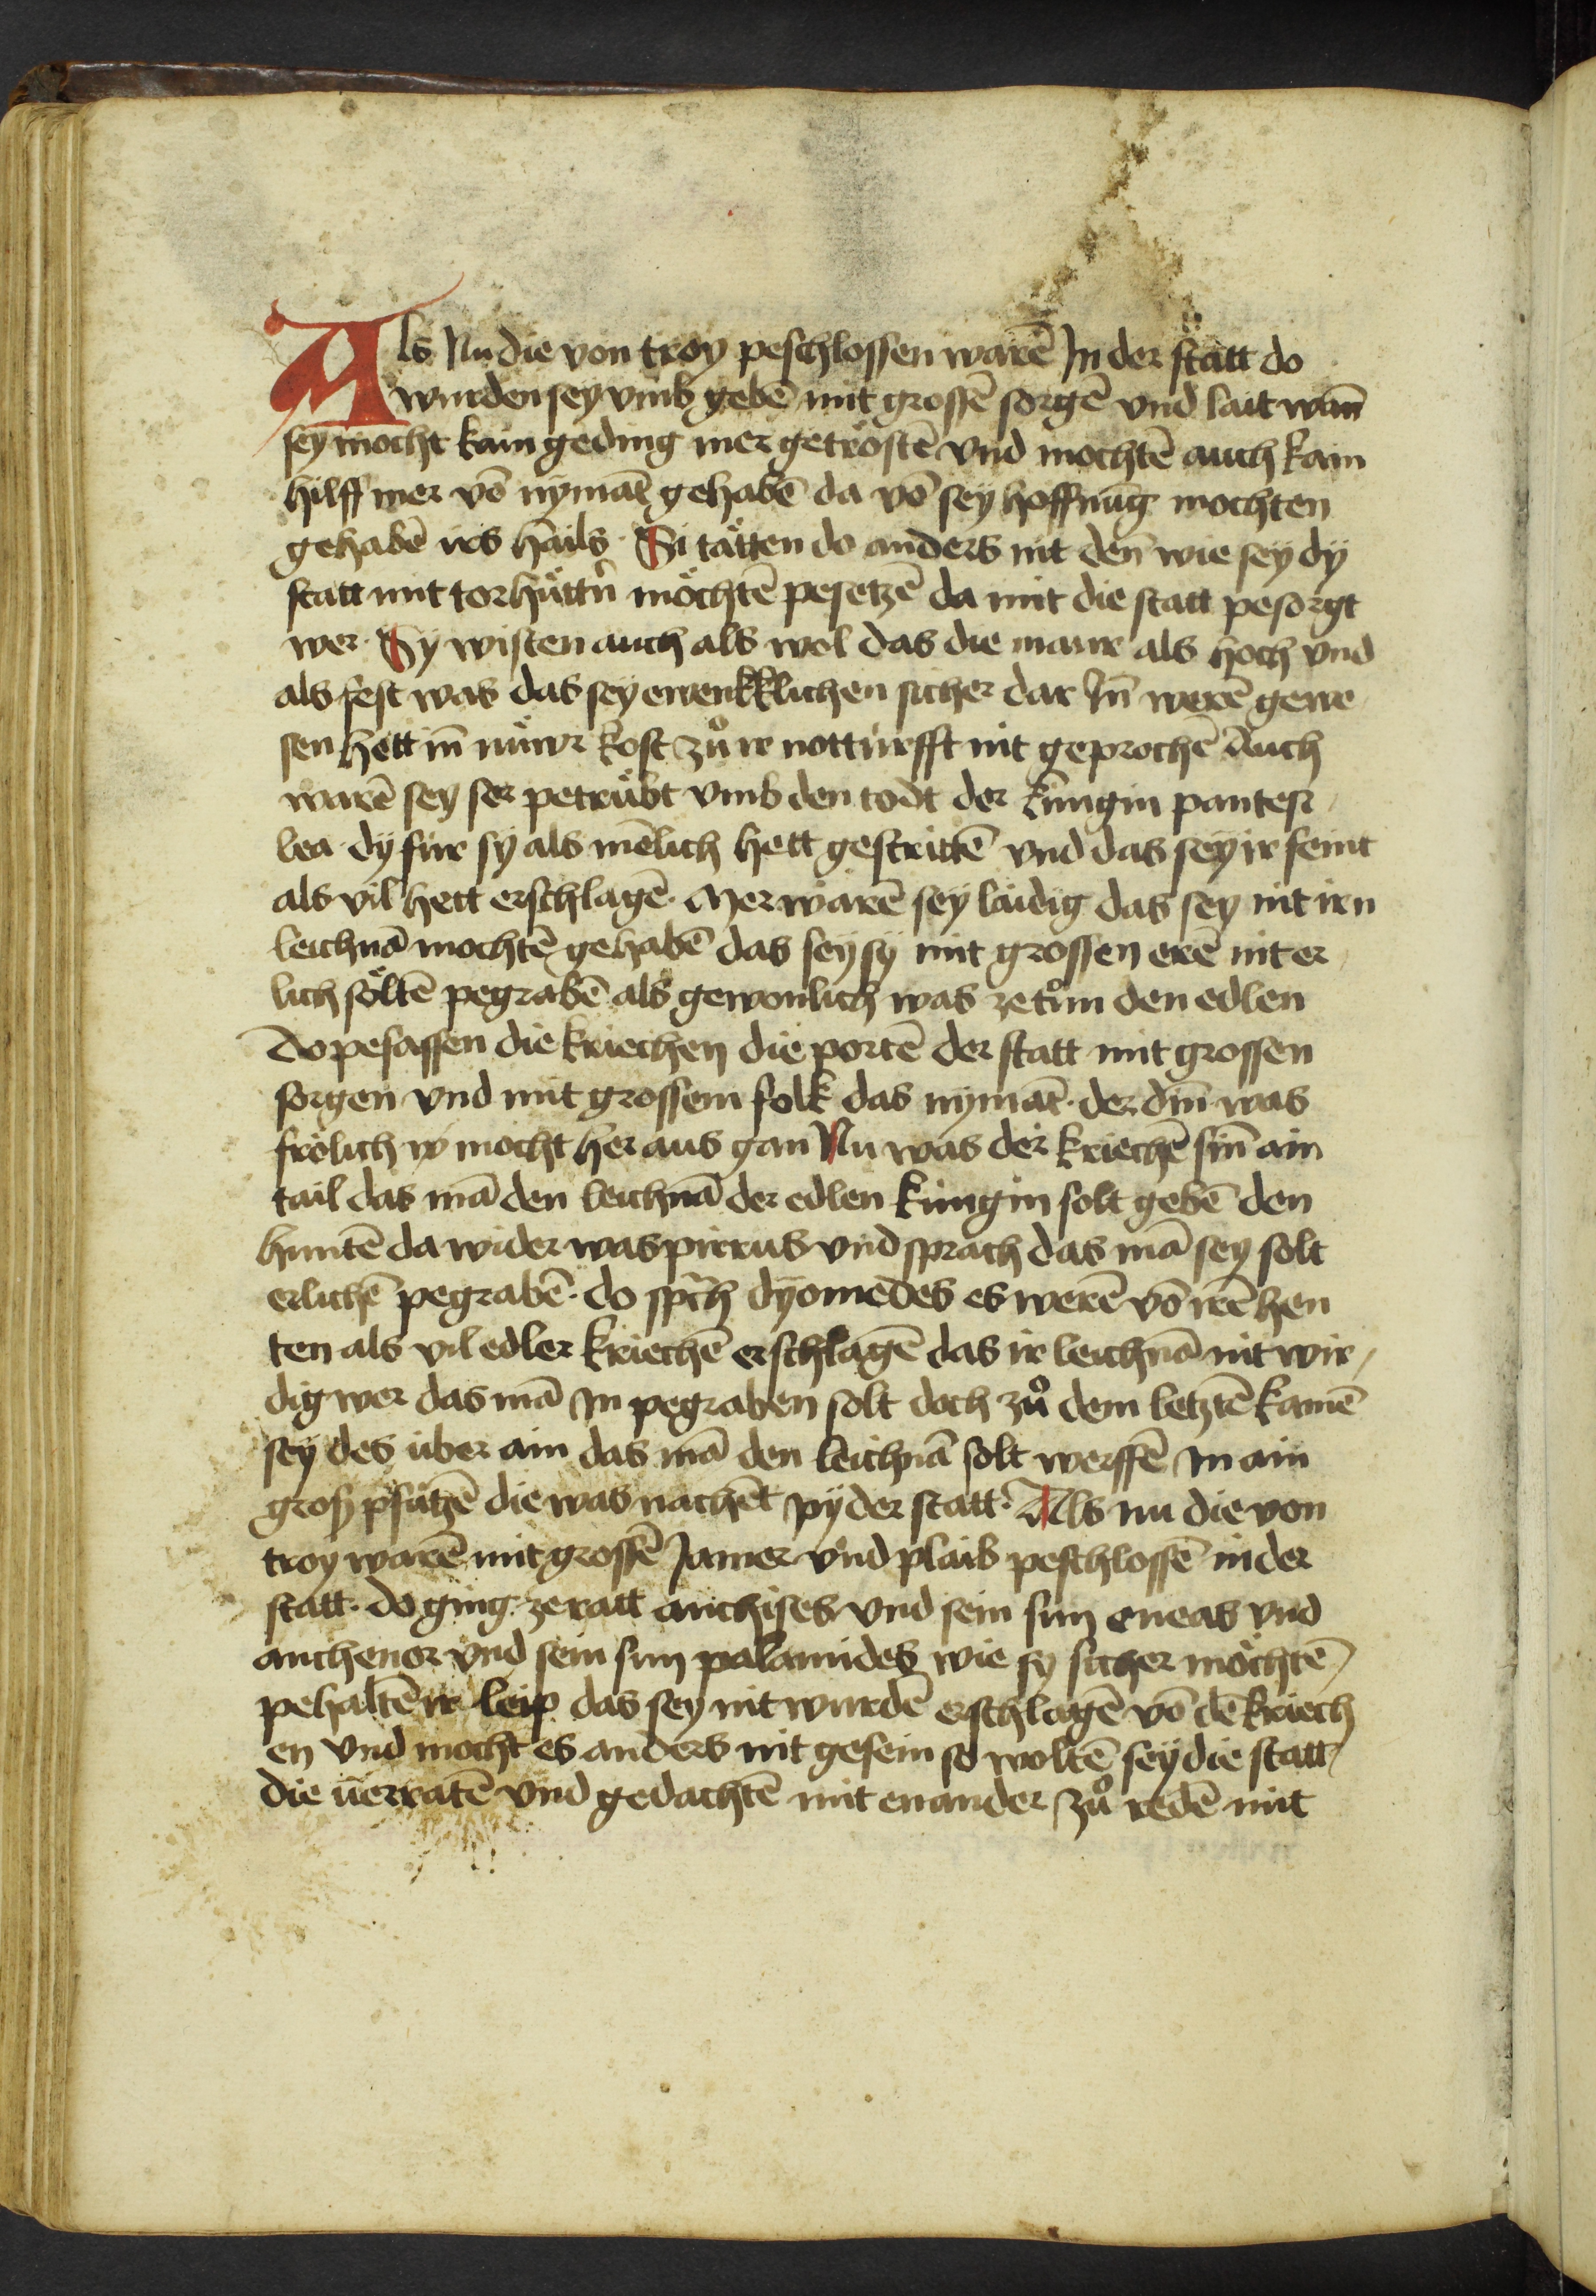 Als Nu die von troy peschlossen warē In der statt do
wurden sey vmb gebē mit grossē sorgē vnd lait wañ
sey mocht kain geding mer getröstē vnd mochtē auch kain
hilff mer vō nymāt gehabē da vō sey hoffnūg mochten
gehabē irs hails · Si tätten do anders nit deñ wie sey dÿ
statt mit torhüttñ möchtē pesetzē da mit die statt pesorgt
wer · Sy wisten auch als wol das die maur als hoch vnd
als fest was das sey ewenkklichen sicher dar Iñ werē gewe
sen hett iñ nüwr kost zů ir notturfft nit geprochē Auch
warē sey ser petrübt vmb den todt der kūngin pantesi
lea dÿ für sÿ als mēlich hett gestrittē vnd das seÿ ir feint
als vil hett erschlagē · Mer warē sey laidig das sey nit irn
leichnā mochtē gehabē das seÿ sÿ mit grossen erē nit er
lich söltē pegrabē als gewonlich was ze tůn den edlen
Do pesassen die kriechen die portē der statt mit grossen
sorgen vnd mit grossem folk das nymāt · der diñ was
frölich mocht her aus gan Nu was der kriechē siñ ain
tail das mā den leichnā der edlen küngin solt gebē den
huntē da wider was pirrus vnd sprach das mā sey solt
erlichē pegrabē · do spͣch dyomedes es werē vō irē hen
ten als vil edler kriechē erschlagē das ir leichnā nit wir
dig wer das mā In pegraben solt doch zů dem letztē kamē
sÿ des über ain das mā den leichnā solt werffē In ain
groß pfützē die was nachēt pÿ der statt · Als nu die von
troy warē mit grossē Jamer vnd plaib peschlossē in der
statt · do ging ze ratt anchises vnd sein sun eneas vnd
anthenor vnd sein sun palamides wie sy sicher möchtē
pehaltē ir leip das sey nit wurdē erschlagē vō dē kriech
en vnd mocht es anders nit gesein so woltē seÿ die statt
die uerratē vnd gedachtē mit enander zů redē mit